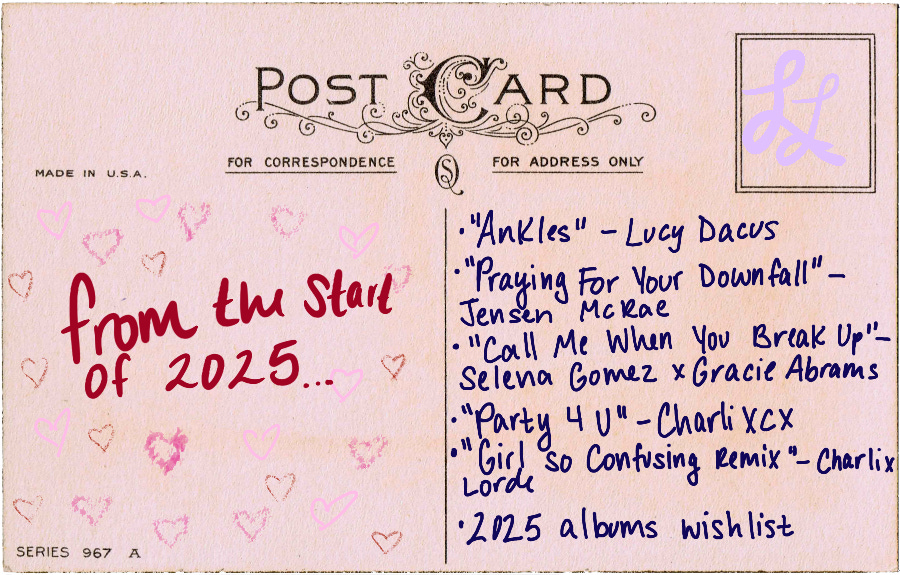 POST CARD
FOR CORRESPONDENCE
FOR ADDRESS ONLY
SQ
MADE IN U.S.A.
LL
from the Start
of 2025...
SERIES 967 A
•"Ankles" - Lucy Dacus
•"Praying For Your Downfall" -
Jensen McRae
•"Call Me When You Break Up"-
Selena Gomez x Gracie Abrams
•"Party 4 U" - Charli XCX
•"Girl so Confusing Remix" - Charli x
Lorde
•2025 albums wishlist